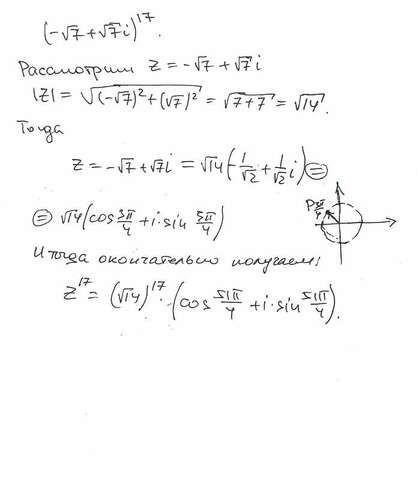 (-√7 + √7i)^17.
Рассмотрим z = -√7 + √7i
|z| = √((-√7)² + (√7)²) = √(7+7) = √14.
Тогда
z = -√7 + √7i = √14(-1/√2 + 1/√2 i) ⊜
⊜ √14(cos 3π/4 + i·sin 3π/4)
P 3π/4
И тогда окончательно получаем:
z^17 = (√14)^17 · (cos 51π/4 + i·sin 51π/4).